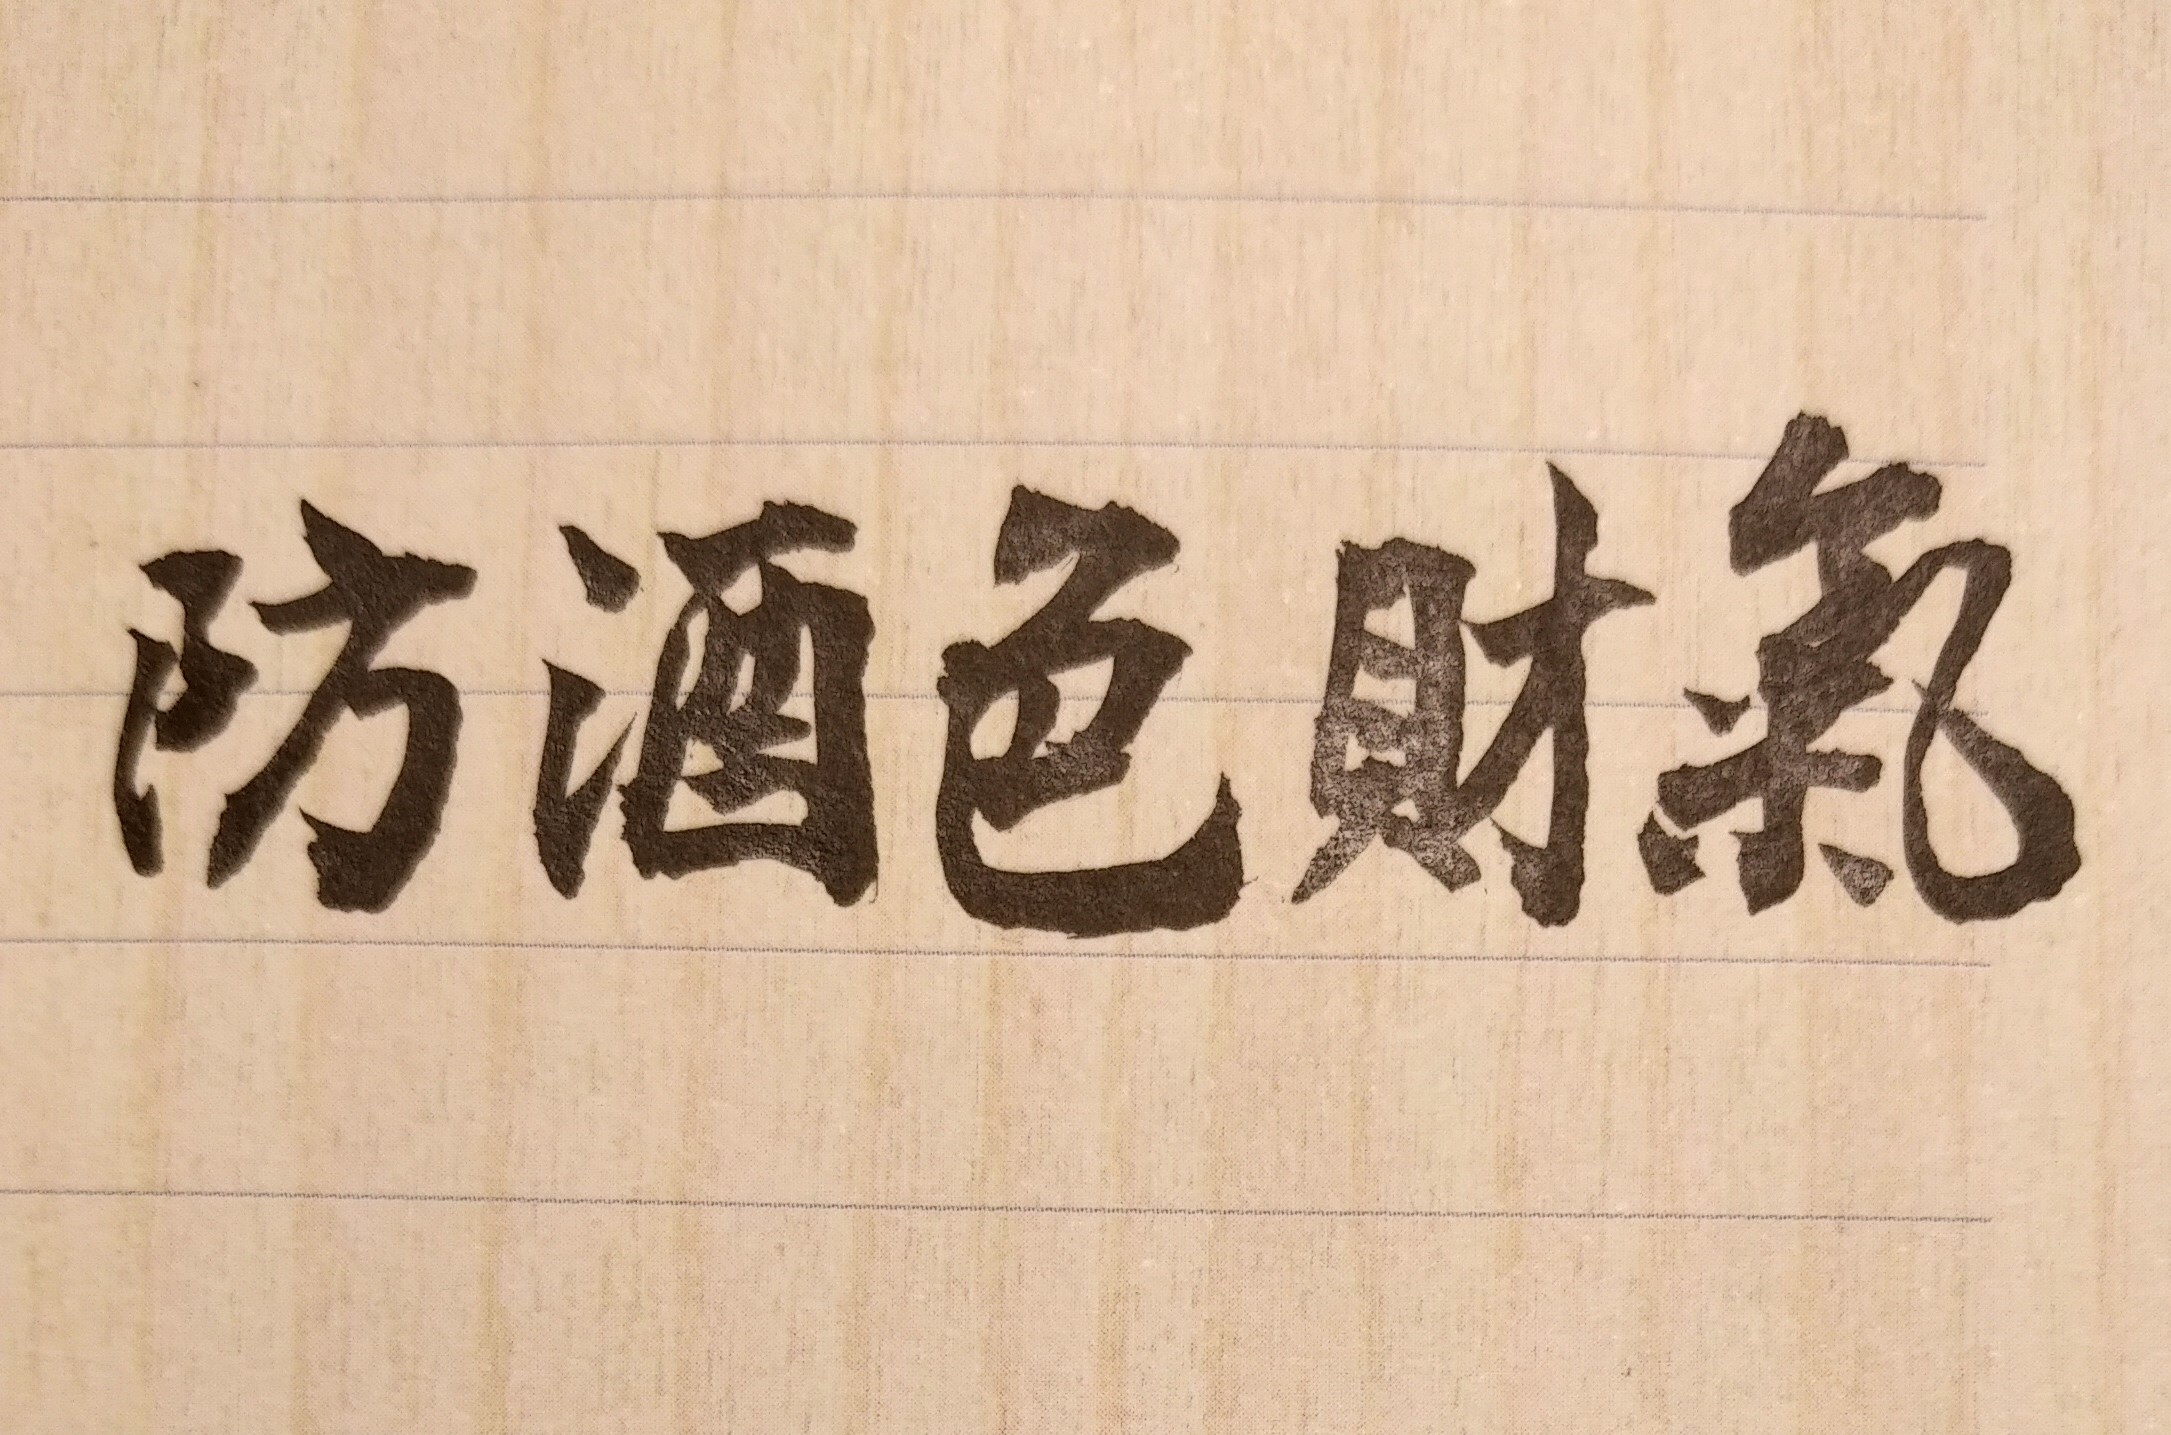 防酒色財氣